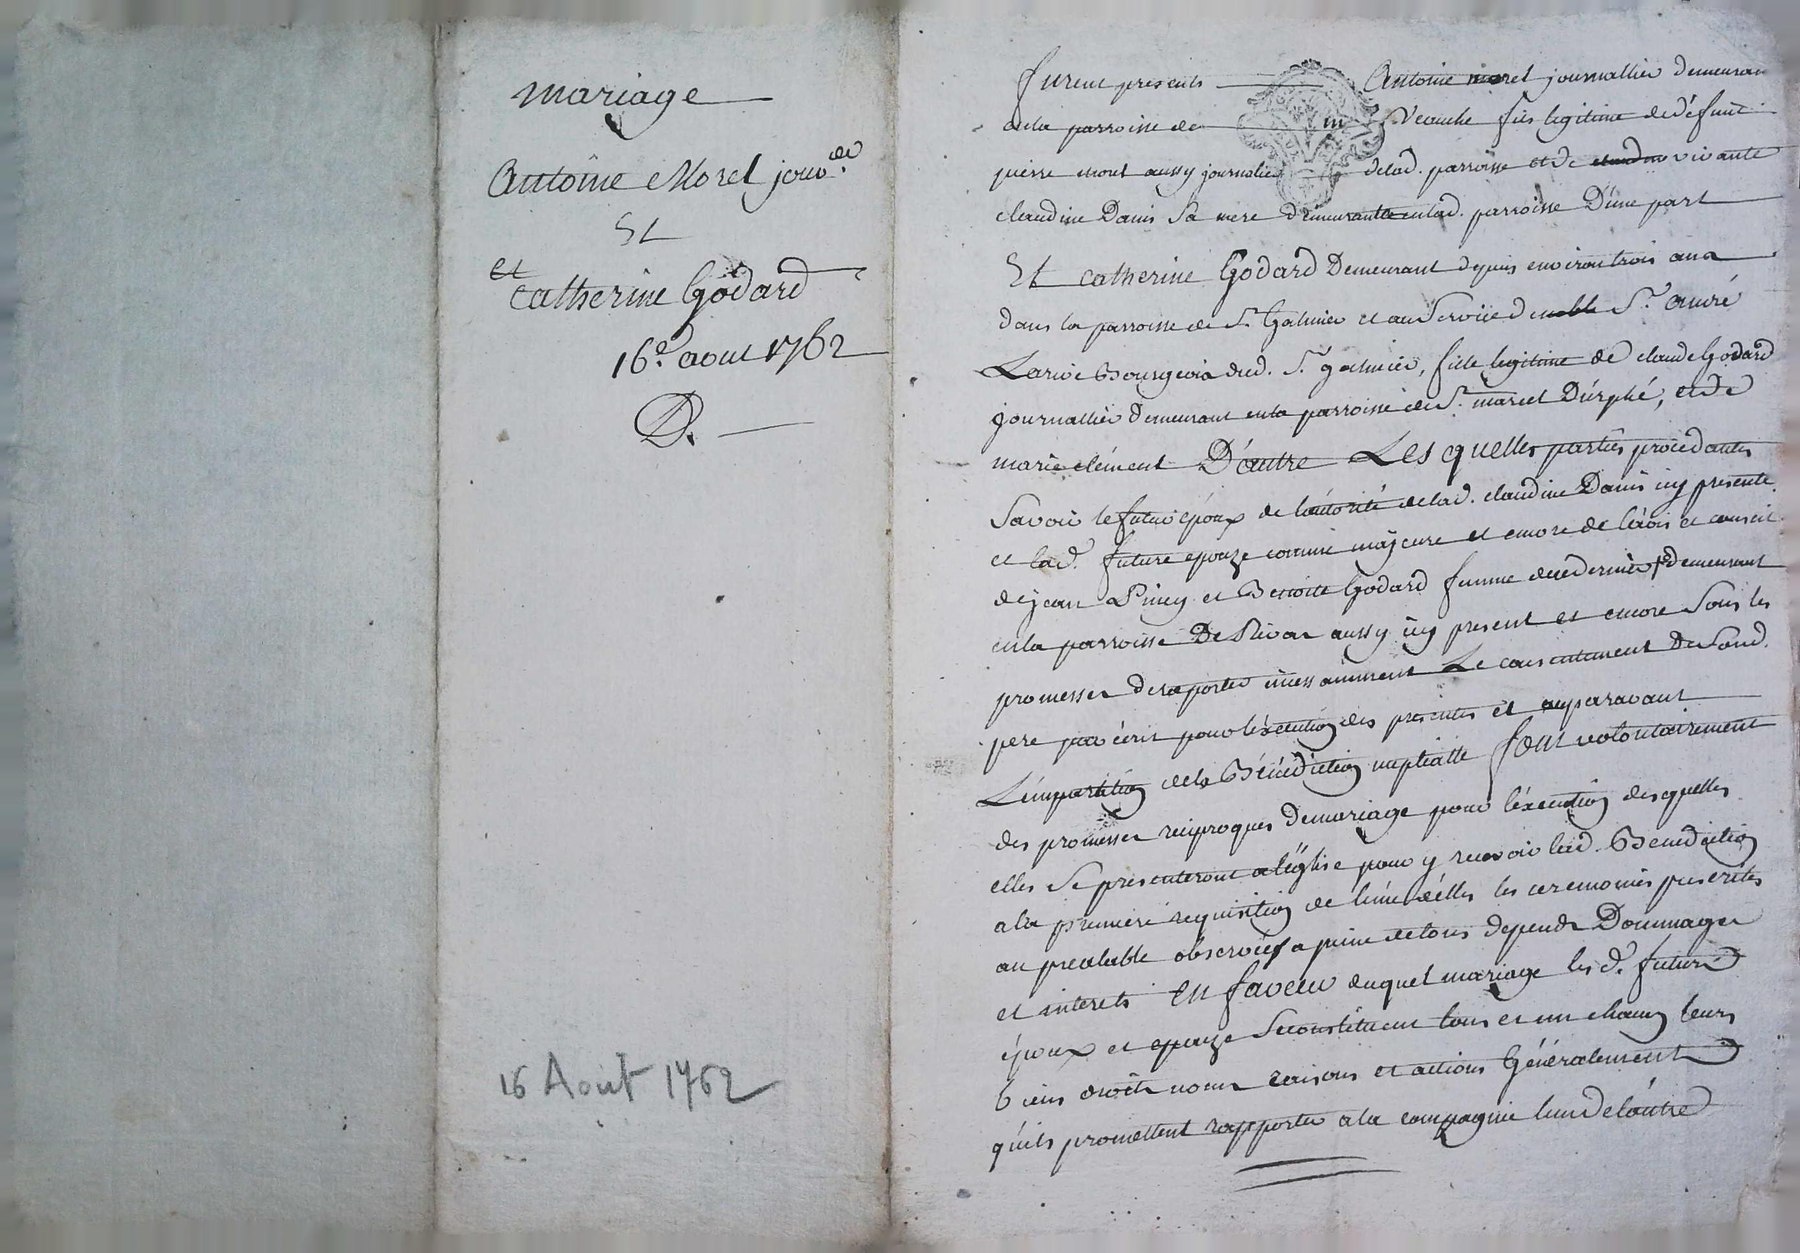 mariage
Antoine Morel jour.der
Et
et
catherine Godard
16e. aout 1762
D.
16 Aout 1762
furent presents Antoine morel journallier demeurant
en la parroisse de Veauche fils legitime de défunt
pierre morel aussy journalier de lad. parroisse et de vivante
claudine Danis Sa mere demeurante en lad. parroisse D'une part
Et catherine Godard Demeurant depuis environ trois ans
dans la parroisse de St. Galmier et au Service de noble Sr. André
Larive Bourgeois dud. St. galmier, fille legitime de claude Godard
journallier demeurant en la parroisse de St. marcel D'urphé, et de
marie clément D'autre Les quelles parties procédantes
Savoir le futur époux de l'autorité de lad. claudine Danis icy presente
et lad. future epouze comme majeure et encore de l'avis et conseil
de jean Piney et Benoite Godard femme de ce dernier demeurant
en la parroisse De Rivas aussy icy present et encore Sous les
promesses de raporter incessamment Le consentement De Sond.
pere par écrit pour l'éxécution des presentes et auparavant
L'impartition de la Bénédiction nuptialle font volontairement
des promesses reciproques de mariage pour l'éxecution desquelles
elles Se presenteront a l'église pour y recevoir lad. Benediction
a la premiere requisition de l'une d'elles les ceremonies prescrites
au prealable observées a peine de tous depends Dommages
et interets En faveur duquel mariage lesd. futurs
époux et epouze Se constituent tous et un chacun leurs
biens droits noms raisons et actions Généralement
qu'ils promettent rapporter a la compagnie l'un de l'autre